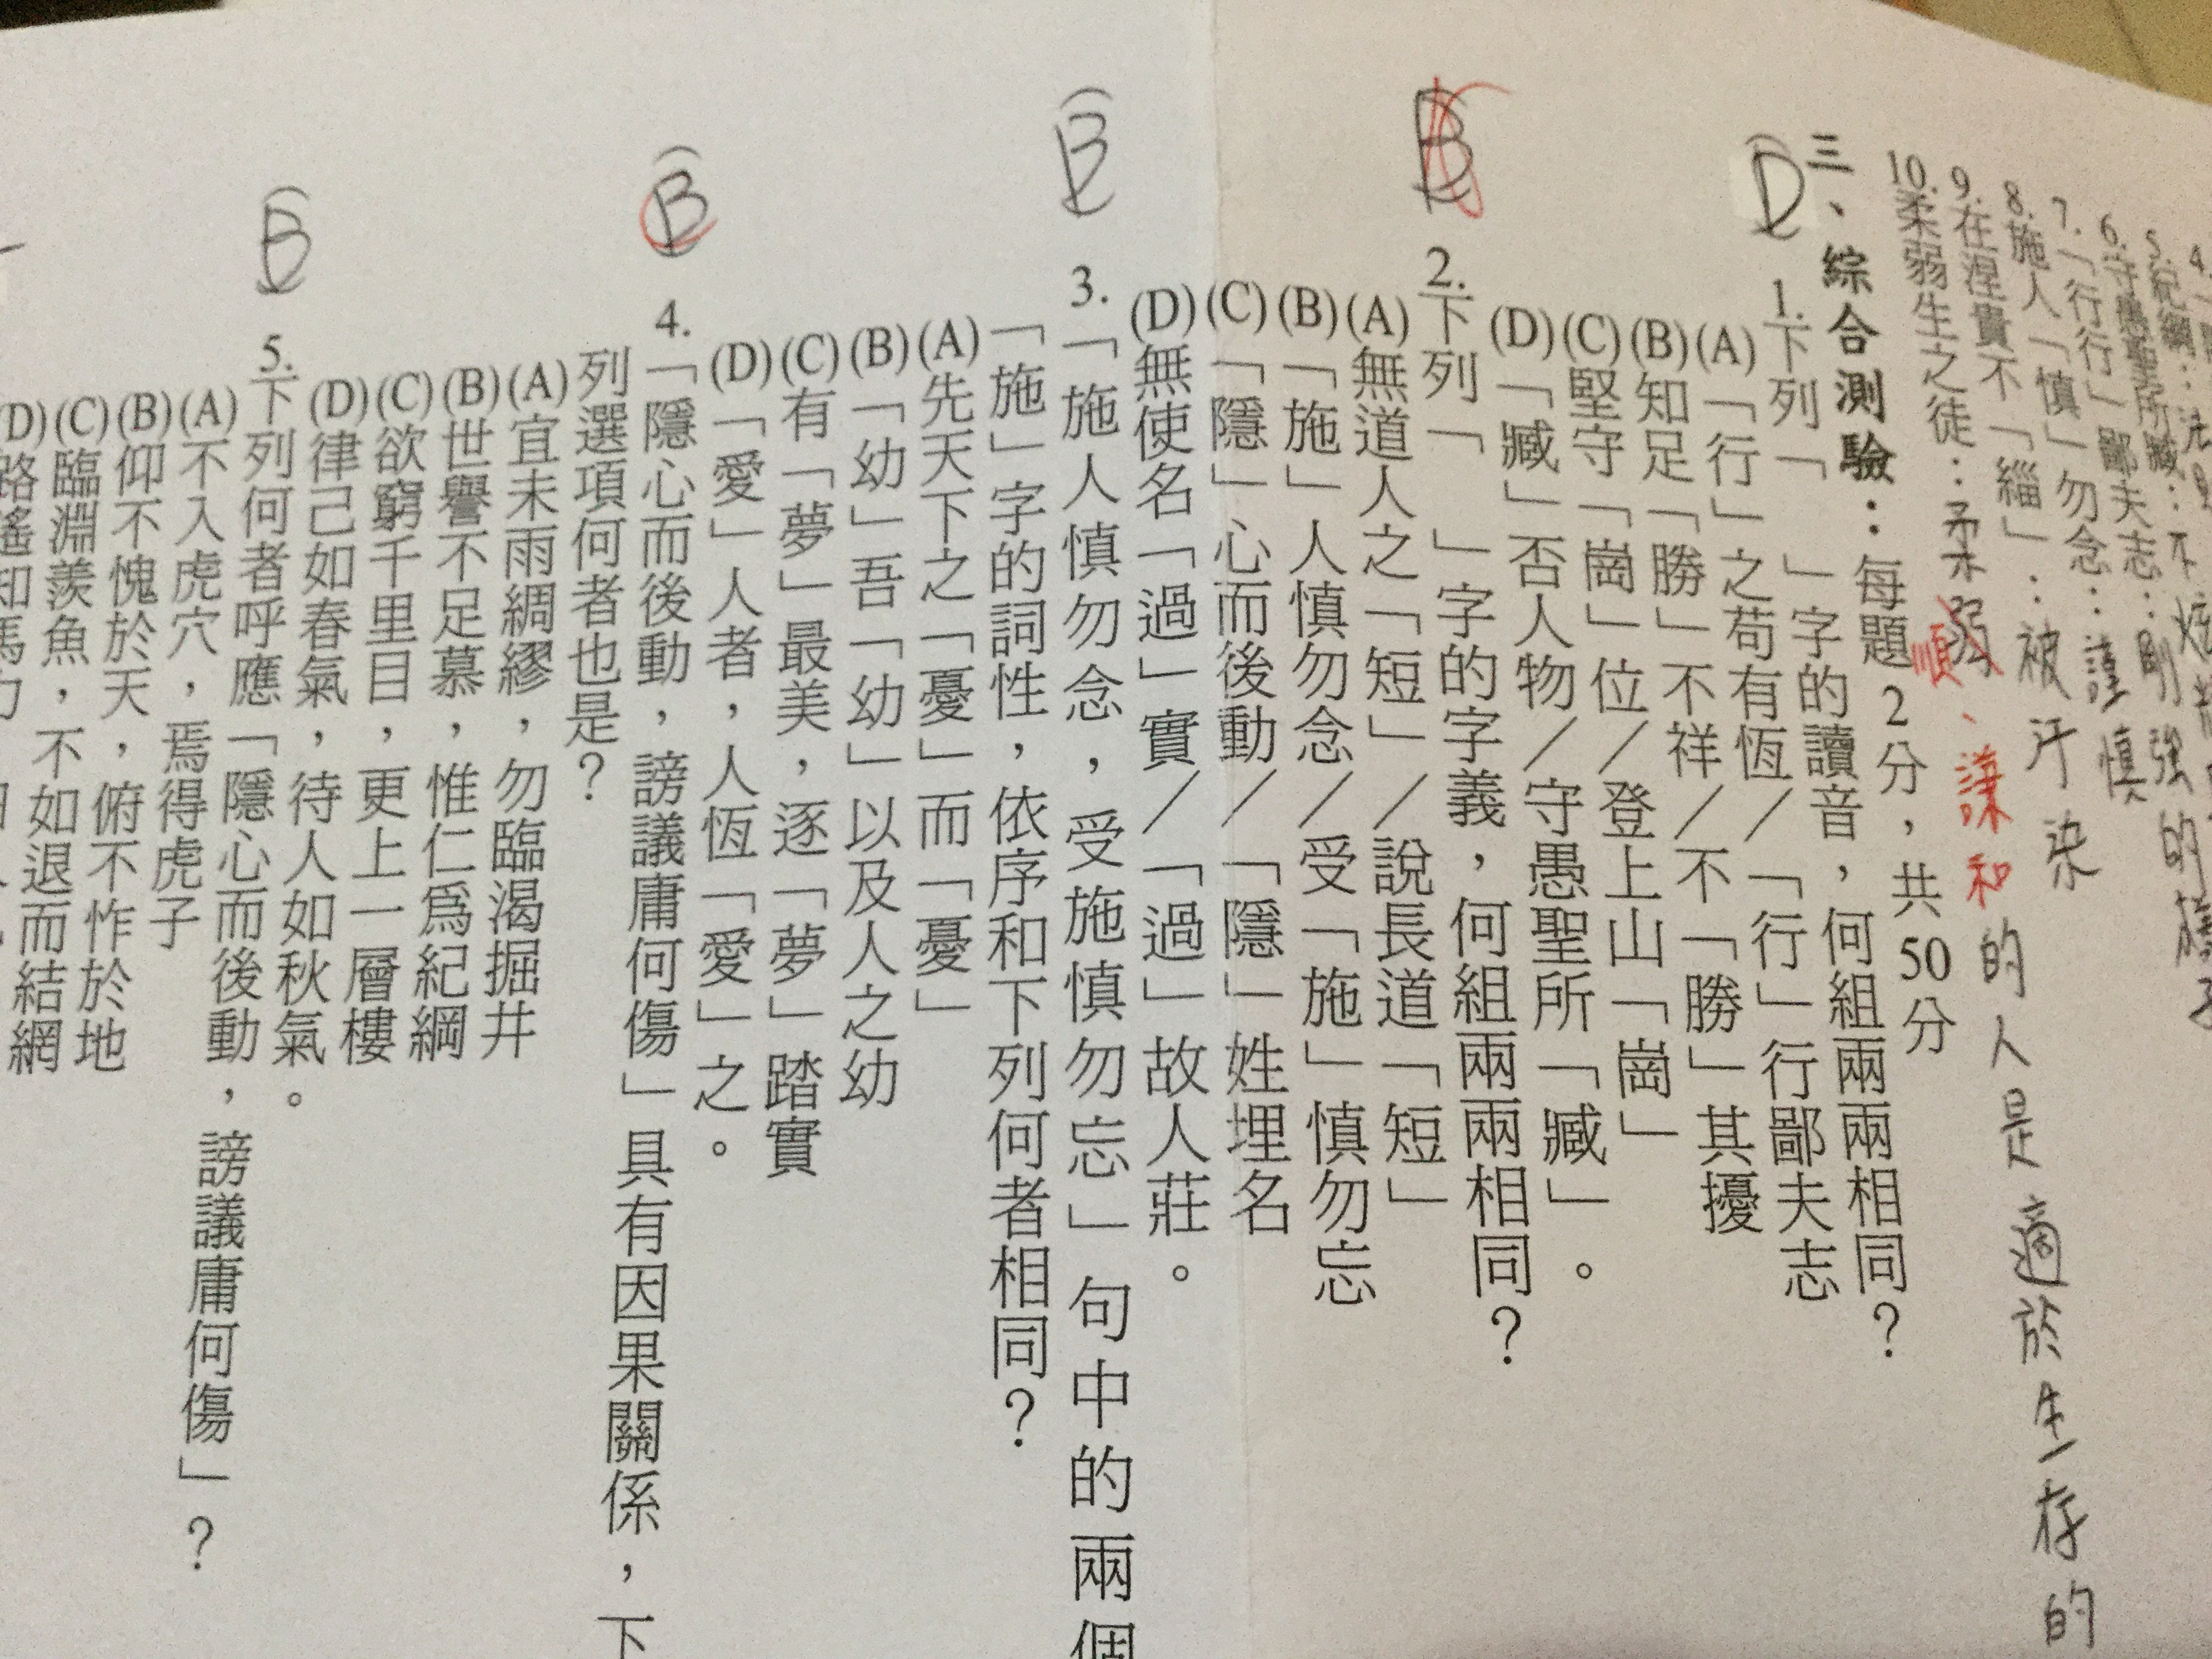 5.紀綱：法
6.守愚聖所臧：不
7.「行行」鄙夫志：剛強的樣子
8.施人「慎」勿念：謹慎
9.在涅貴不「緇」：被汙染
10.柔弱生之徒：柔弱順、謙和的人是適於生存的
三、綜合測驗：每題2分，共50分
(D)1.下列「　」字的讀音，何組兩兩相同？
(A)「行」之苟有恆／「行」行鄙夫志
(B)知足「勝」不祥／不「勝」其擾
(C)堅守「崗」位／登上山「崗」
(D)「臧」否人物／守愚聖所「臧」。
(B)2.下列「　」字的字義，何組兩兩相同？
(A)無道人之「短」／說長道「短」
(B)「施」人慎勿念／受「施」慎勿忘
(C)「隱」心而後動／「隱」姓埋名
(D)無使名「過」實／「過」故人莊。
(B)3.「施人慎勿念，受施慎勿忘」句中的兩個
「施」字的詞性，依序和下列何者相同？
(A)先天下之「憂」而「憂」
(B)「幼」吾「幼」以及人之幼
(C)有「夢」最美，逐「夢」踏實
(D)「愛」人者，人恆「愛」之。
(B)4.「隱心而後動，謗議庸何傷」具有因果關係，下
列選項何者也是？
(A)宜未雨綢繆，勿臨渴掘井
(B)世譽不足慕，惟仁為紀綱
(C)欲窮千里目，更上一層樓
(D)律己如春氣，待人如秋氣。
(B)5.下列何者呼應「隱心而後動，謗議庸何傷」？
(A)不入虎穴，焉得虎子
(B)仰不愧於天，俯不怍於地
(C)臨淵羨魚，不如退而結網
(D)路遙知馬力